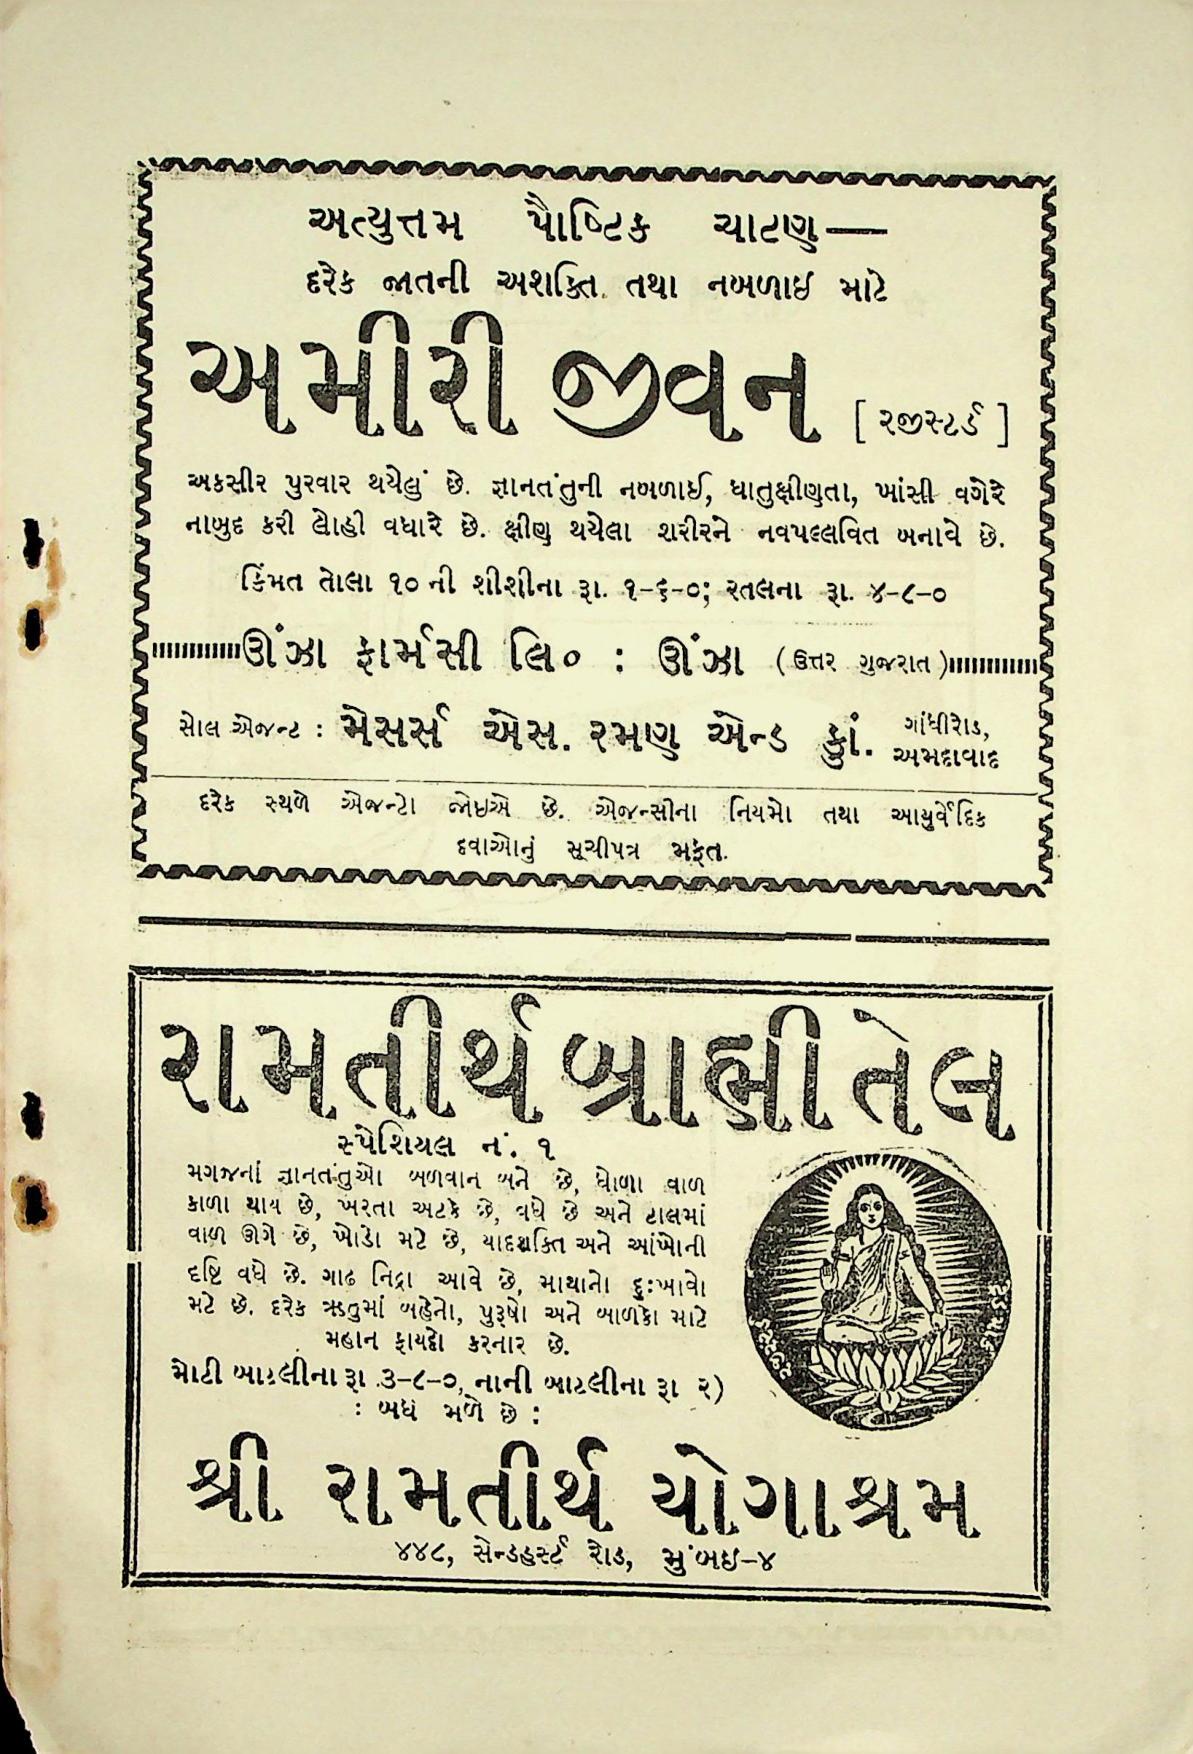 અત્યુત્તમ પૌષ્ટિક ચાટણ—
દરેક જાતની અશક્તિ તથા નબળાઇ માટે
અમીરી જીવન [ રજીસ્ટર્ડ ]
અકસીર પુરવાર થયેલું છે. જ્ઞાનતંતુની નબળાઈ, ધાતુક્ષીણતા, ખાંસી વગેરે
નાબુદ કરી લોહી વધારે છે. ક્ષીણ થયેલા શરીરને નવપલ્લવિત બનાવે છે.
કિંમત તોલા ૧૦ ની શીશીના રૂા. ૧-૬-૦; રતલના રૂા. ૪-૮-૦
ઊંઝા ફાર્મસી લિ૦ : ઊંઝા (ઉત્તર ગુજરાત)
સોલ એજન્ટ : મેસર્સ એસ. રમણ એન્ડ કું. ગાંધીરોડ,
અમદાવાદ
દરેક સ્થળે એજન્ટો જોઇએ છે. એજન્સીના નિયમો તથા આયુર્વેદિક
દવાઓનું સૂચીપત્ર મફત.
રામતીર્થ બ્રાહ્મી તેલ
સ્પેશિયલ નં. ૧
મગજનાં જ્ઞાનતંતુઓ બળવાન બને છે, ધોળા વાળ
કાળા થાય છે, ખરતા અટકે છે, વધે છે અને ટાલમાં
વાળ ઊગે છે, ખોડો મટે છે, યાદશક્તિ અને આંખોની
દૃષ્ટિ વધે છે. ગાઢ નિદ્રા આવે છે, માથાનો દુઃખાવો
મટે છે. દરેક ઋતુમાં બહેનો, પુરૂષો અને બાળકો માટે
મહાન ફાયદો કરનાર છે.
મોટી બાટલીના રૂા ૩-૮-૦, નાની બાટલીના રૂા ૨)
: બધે મળે છે :
શ્રી રામતીર્થ યોગાશ્રમ
૪૪૮, સેન્ડહર્સ્ટ રોડ, મુંબઇ-૪